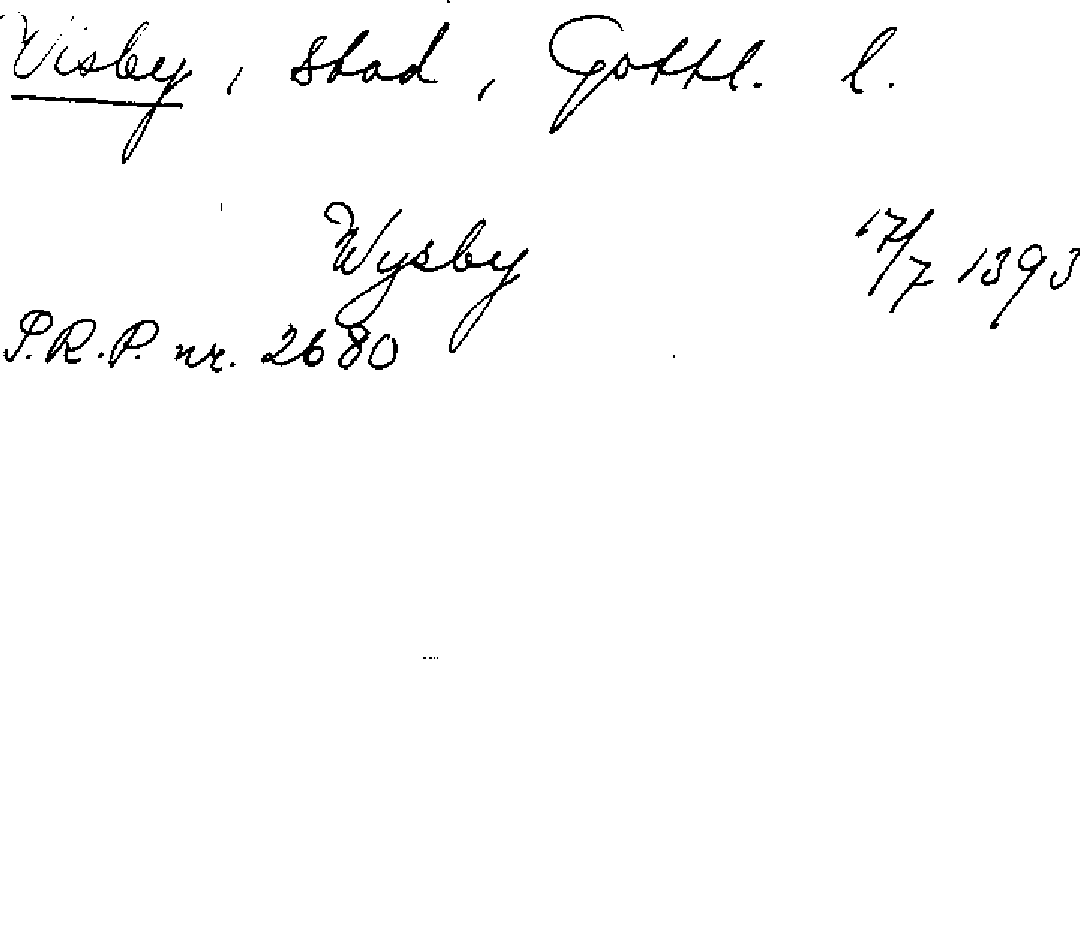 Visby, stad, Gottl. l.
Wysby 17/7 1393
S.R.P. nr. 2680